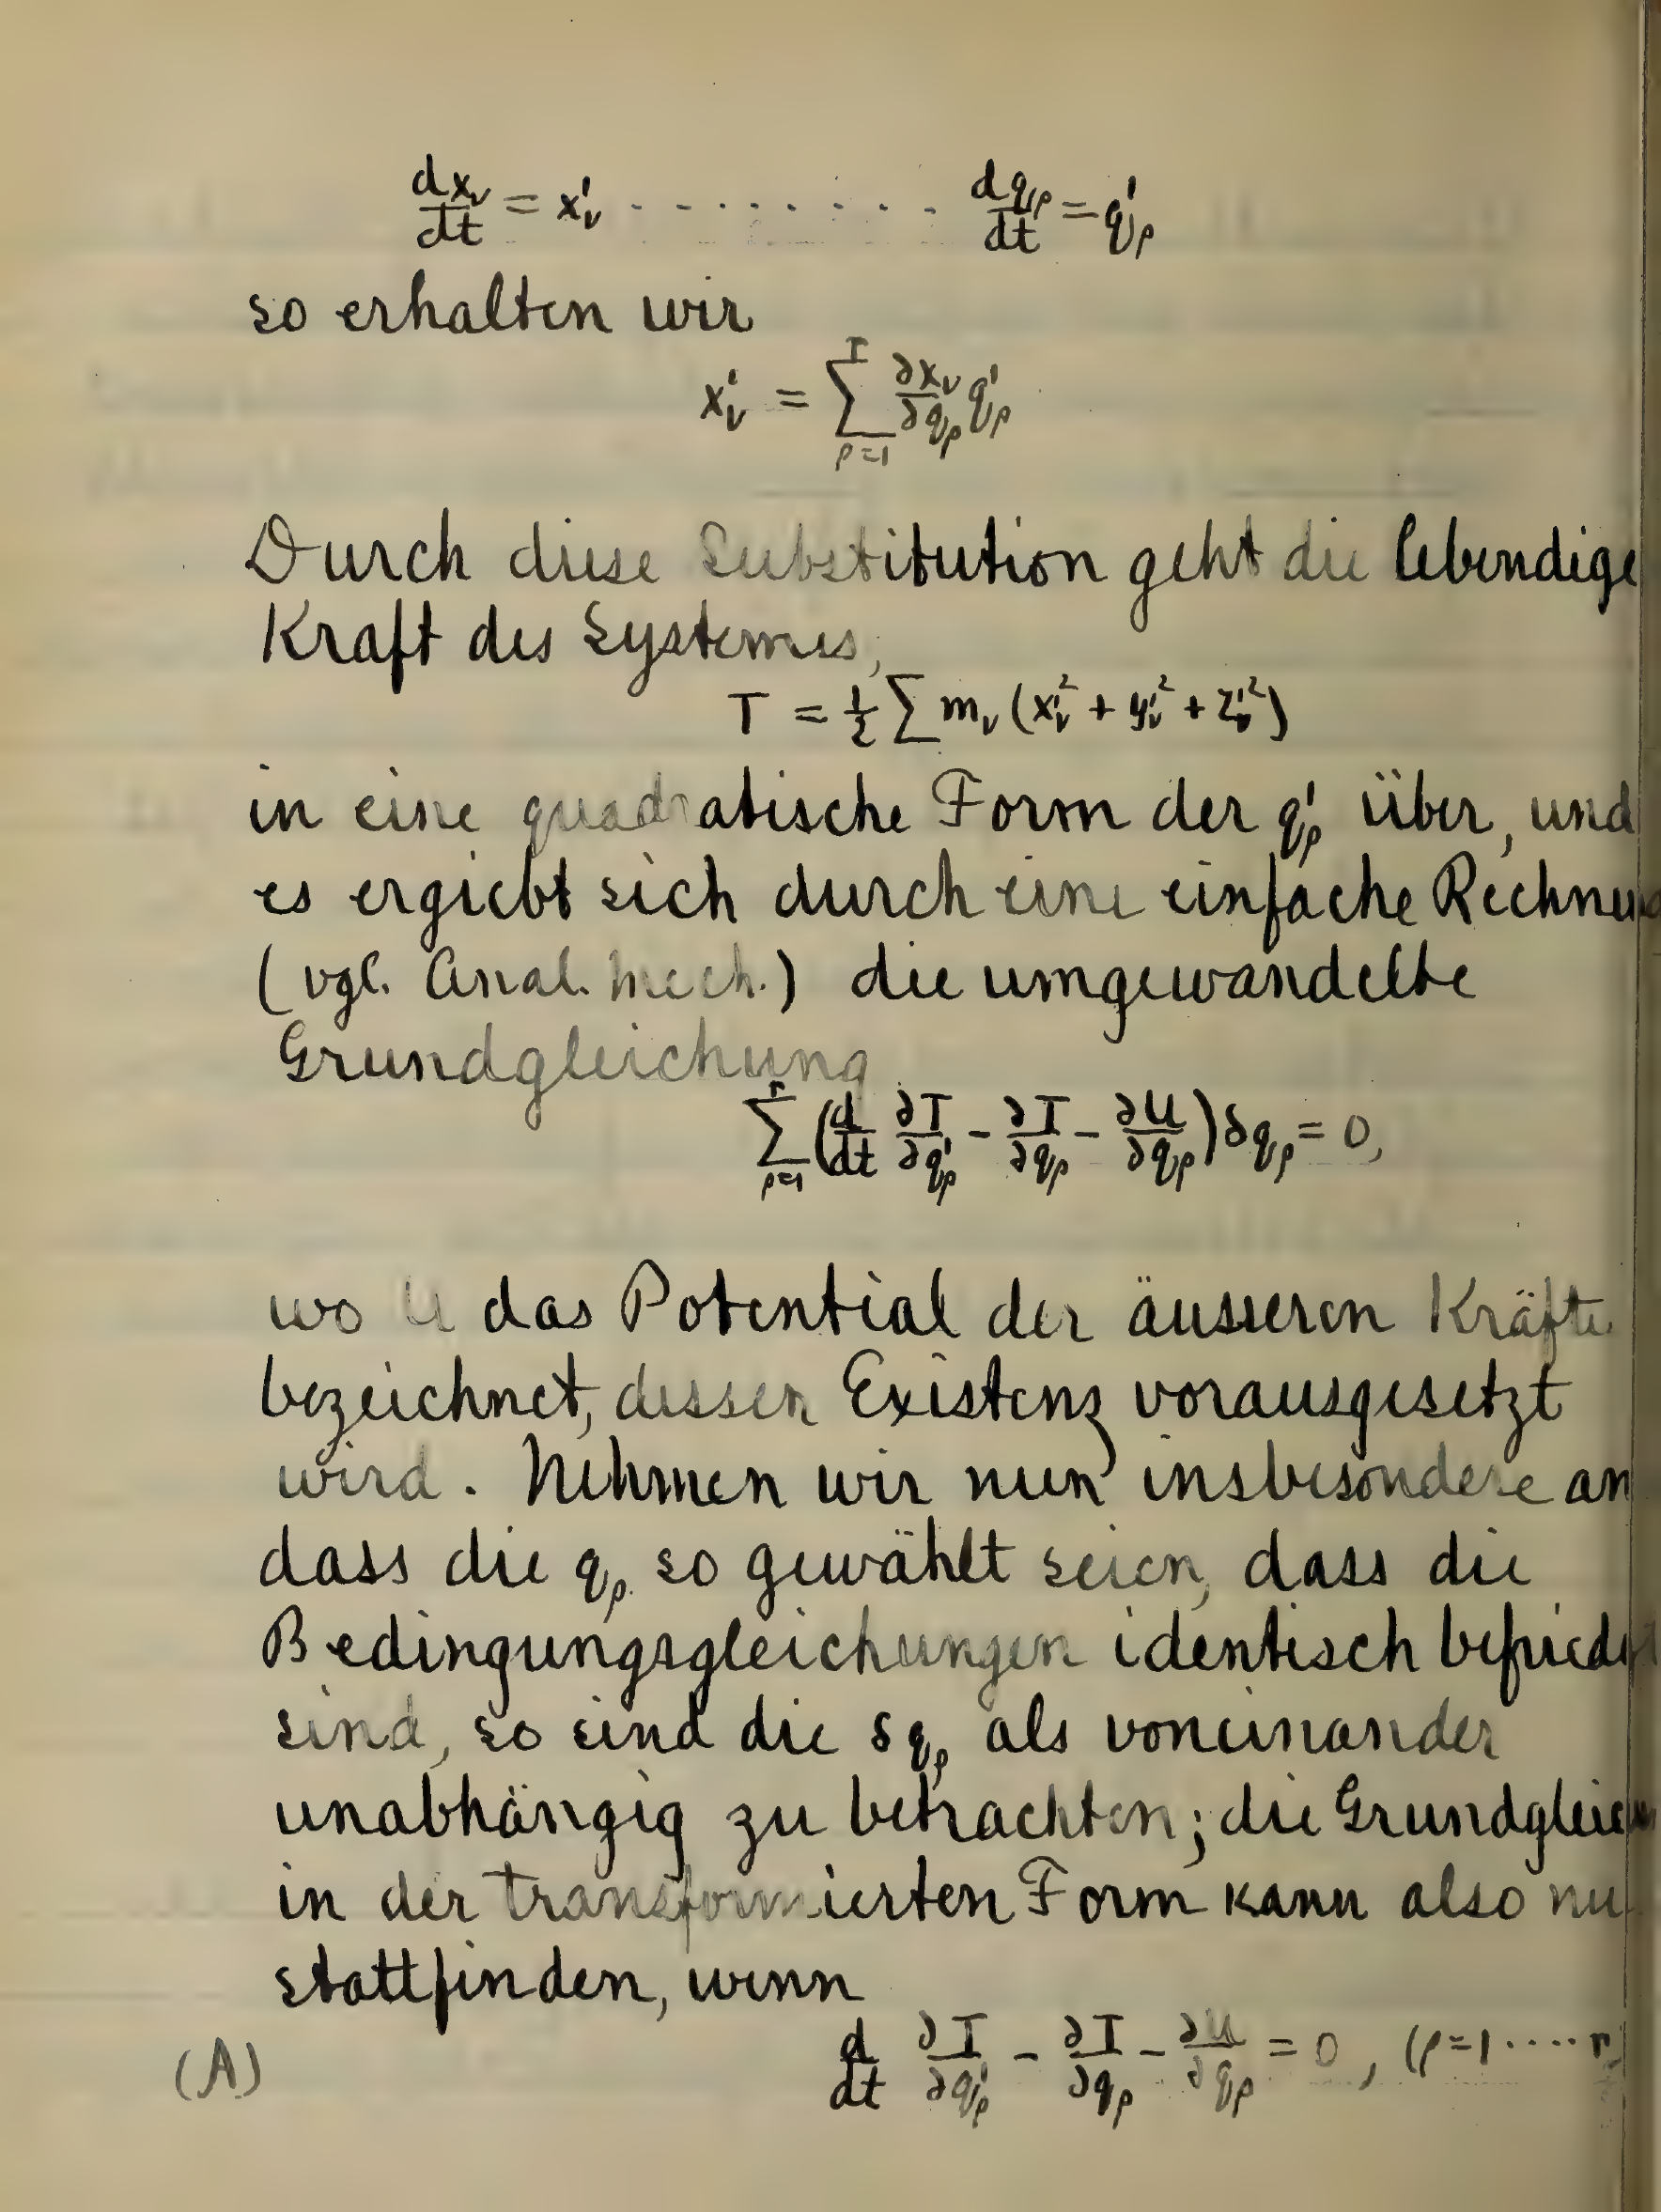 dx_ν/dt = x'_ν . . . . . . . . dq_ρ/dt = q'_ρ
so erhalten wir
x'_ν = ∑_{ρ=1}^{r} ∂x_ν/∂q_ρ q'_ρ
Durch diese Substitution geht die lebendige
Kraft des Systemes,
T = 1/2 ∑ m_ν (x'_ν² + y'_ν² + z'_ν²)
in eine quadratische Form der q'_ρ über, und
es ergiebt sich durch eine einfache Rechnu
(vgl. Anal. Mech.) die umgewandelte
Grundgleichung
∑_{ρ=1}^{r} (d/dt ∂T/∂q'_ρ - ∂T/∂q_ρ - ∂U/∂q_ρ) δq_ρ = 0,
wo U das Potential der äusseren Kräfte
bezeichnet, dessen Existenz vorausgesetzt
wird. Nehmen wir nun insbesondere an
dass die q_ρ so gewählt seien, dass die
Bedingungsgleichungen identisch befriedigt
sind, so sind die δq_ρ als voneinander
unabhängig zu betrachten; die Grundgleich
in der transformierten Form kann also nu
stattfinden, wenn
(A) d/dt ∂T/∂q'_ρ - ∂T/∂q_ρ - ∂U/∂q_ρ = 0, (ρ=1.....r